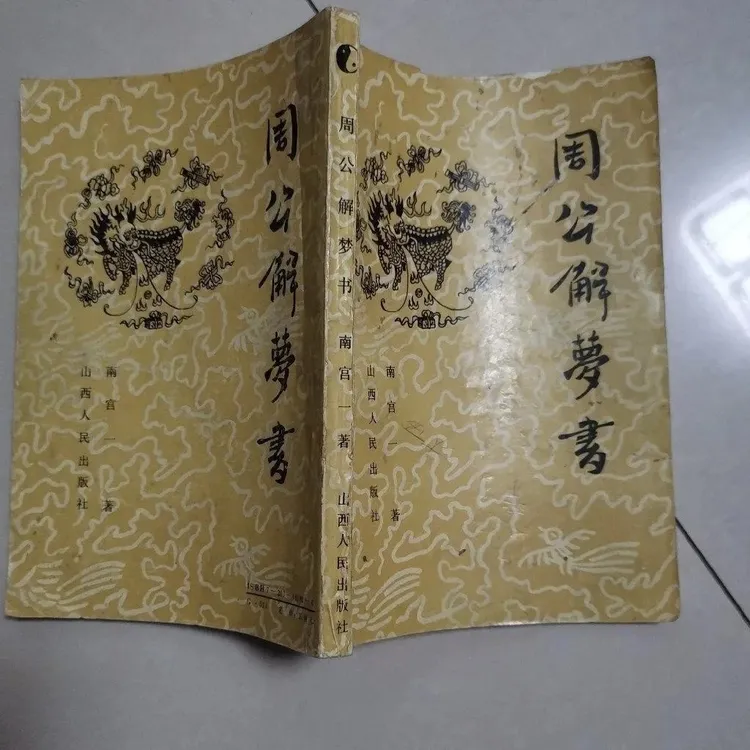 周公解夢書
南宫一著
山西人民出版社
周公解梦书 南宫一著 山西人民出版社
周公解夢書
南宫一著
山西人民出版社